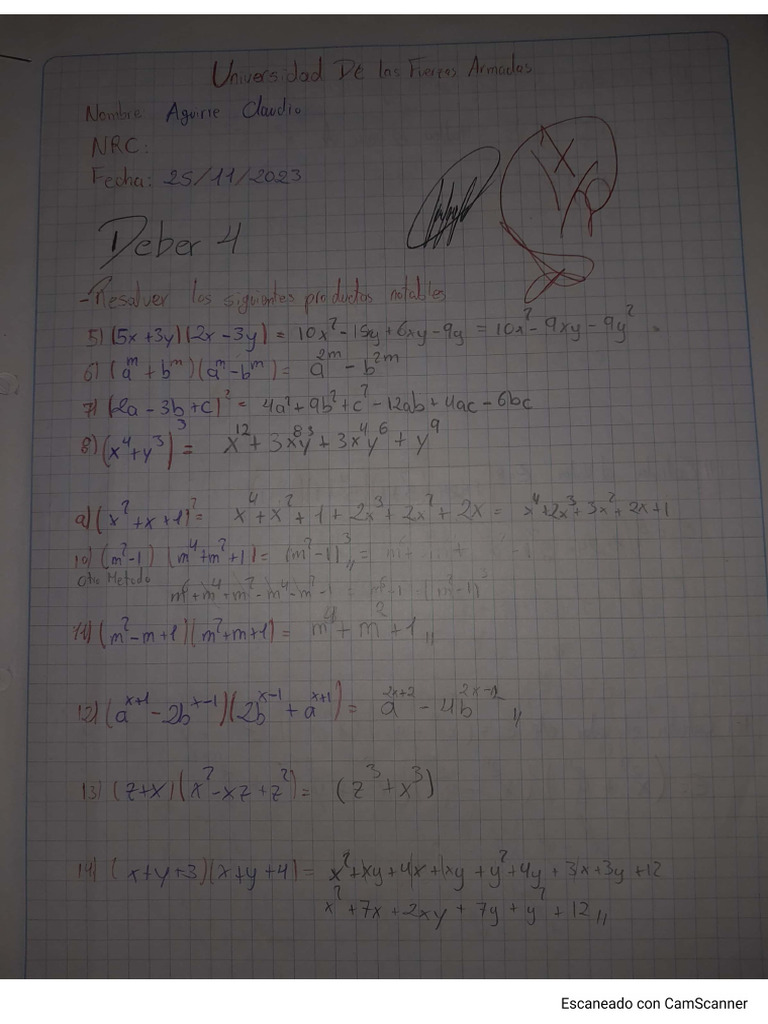 Universidad De las Fuerzas Armadas
Nombre Aguirre Claudio
NRC:
Fecha: 25/11/2023
Deber 4
-Resolver los siguientes productos notables
5) (5x + 3y)(2x - 3y) = 10x² - 15y + 6xy - 9y = 10x² - 9xy - 9y²
6) (a^m + b^m)(a^m - b^m) = a^2m - b^2m
7) (2a - 3b + c)² = 4a² + 9b² + c² - 12ab + 4ac - 6bc
8) (x⁴ + y³)³ = x¹² + 3x⁸y³ + 3x⁴y⁶ + y⁹
9) (x² + x + 1)² = x⁴ + x² + 1 + 2x³ + 2x² + 2x = x⁴ + 2x³ + 3x² + 2x + 1
10) (m² - 1) (m⁴ + m² + 1) = (m² - 1)³ =
Otro Metodo
11) (m² - m + 1)(m² + m + 1) = m⁴ + m² + 1
12) (a^x+1 - 2b^x-1)(2b^x-1 + a^x+1) = a^2x+2 - 4b^2x-2
13) (z + x)(x² - xz + z²) = (z³ + x³)
14) (x + y + 3)(x + y + 4) = x² + xy + 4x + xy + y² + 4y + 3x + 3y + 12
x² + 7x + 2xy + 7y + y² + 12
Escaneado con CamScanner